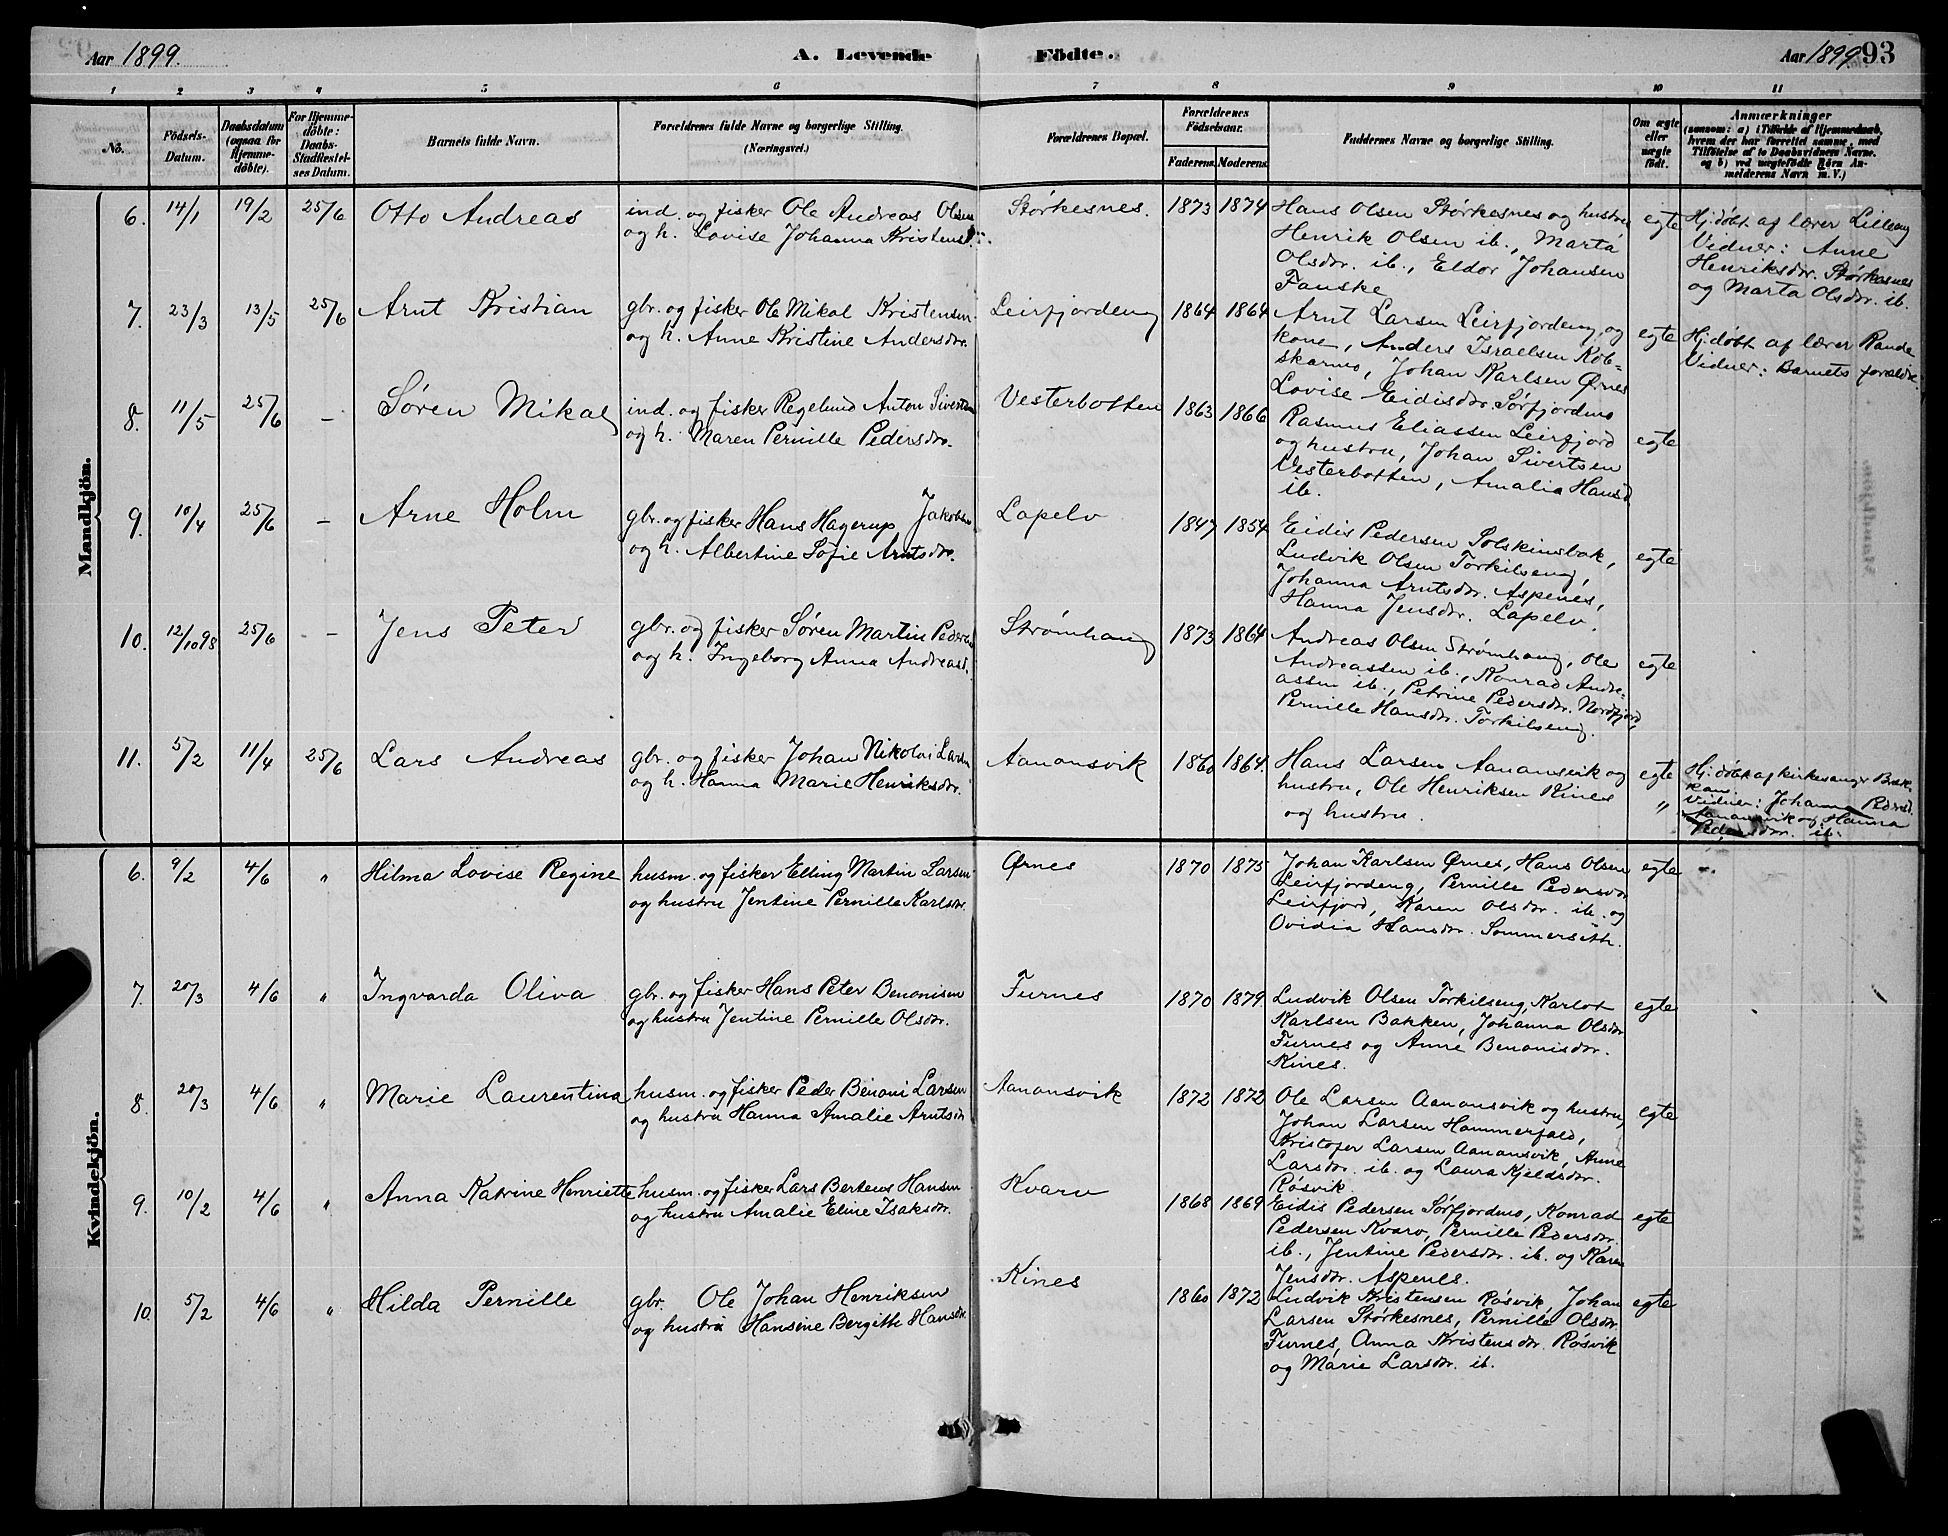 Aar 1899.
A. Levende Födte.
Aar 1899. 93
1 2 3 4 5 6 7 8 9 10 11
No.
Födsels-Datum.
Daabsdatum (ogsaa for Hjemmedöbte).
For Hjemmedöbte: Daabs-Stadfestelses Datum.
Barnets fulde Navn.
Forældrenes fulde Navne og borgerlige Stilling. (Næringsvei.)
Forældrenes Bopæl.
Forældrenes Födselsaar.
Faderens. Moderens.
Faddernes Navne og borgerlige Stilling.
Om ægte eller uægte födt.
Anmærkninger
(saasom: a) i Tilfælde af Hjemmedaab, hvem der har forrettet samme, med Tilföielse af to Daabsvidners Navne. og b) ved uægtefödte Börn Anmelderens Navn m. V.)
Mandkjön.
6. 14/1 19/2 25/6 Otto Andreas
ind. og fisker Ole Andreas Olsen
og h. Lovise Johanna Kristensd.
Størkesnes. 1873 1874
Hans Olsen Størkesnes og hustru
Henrik Olsen ib., Marta
Olsdtr. ib., Eldor Johansen
Fauske
egte
Hj.døbt af lærer Lilleeng
Vidner: Anne
Henriksdr. Størkesnes
og Marta Olsdr. ib.
7. 23/3 13/5 25/6 Arnt Kristian
gbr. og fisker Ole Mikal Kristensen
og h. Anne Kristine Andersdr.
Leirfjordeng 1864 1864
Arnt Larsen Leirfjordeng, og
kone, Anders Israelsen Kob-
skarnes, Johan Karlsen Ørnes
Lovise Eidisdr. Sørfjordmo
egte
Hj.døbt af lærer Rande
Vidner: Barnets forældre.
8. 11/5 25/6 - Søren Mikal
ind. og fisker Regelund Anton Sivertsen
og h. Maren Pernille Pedersdr.
Vesterbotten 1863 1866
Rasmus Eliassen Leirfjord
og hustru, Johan Sivertsen
Vesterbotten, Amalia Hansd.
ib.
egte
9. 10/4 25/6 - Arne Holm
gbr. og fisker Hans Hagerup Jakobsen
og h. Albertine Sofie Arntsdr.
Lapelv 1847 1854
Eidis Pedersen Solskinsbak,
Ludvik Olsen Torkilseng,
Johanna Arntsdr. Aspenes,
Hanna Jensdr. Lapelv.
egte
10. 12/10 98 25/6 - Jens Peter
gbr. og fisker Søren Martin Pedersen
og h. Ingeborg Anna Andreasd.
Strømhaug 1873 1864
Andreas Olsen Strømhaug, Ole
Andreassen ib., Konrad Andre-
assen ib., Petrine Pedersdr. Nordfjord,
Pernille Hansdr. Torkilseng.
egte
11. 5/2 11/4 25/6 Lars Andreas
gbr. og fisker Johan Nikolai Larsen
og h. Hanna Marie Henriksdr.
Aanansvik 1860 1864.
Hans Larsen Aanansvik og
hustru, Ole Henriksen Kines
og hustru.
egte
"
Hj.døbt af kirkesanger Bak-
ken.
Vidner: Johanna Pedersd.
Aanansvik og Hanna
Pedersdr. ib.
Kvindekjön.
6. 9/2 4/6 " Hilma Lovise Regine
husm. og fisker Elling Martin Larsen
og hustru Jentine Pernille Karlsdr.
Ørnes 1870 1875
Johan Karlsen Ørnes, Hans Olsen
Leirfjordeng, Pernille Pedersdr
Leirfjord, Karen Olsdr. ib. og
Ovidia Hansdr. Sommerseth.
egte
7. 20/3 4/6 " Ingvarda Oliva
gbr. og fisker Hans Peter Benonisen
og hustru Jentine Pernille Olsdr.
Furnes 1870 1879.
Ludvik Olsen Torkilseng, Karlot
Karlsen Bakken, Johanna Olsdr
Furnes og Anne Benonisdr.
Kines.
egte
8. 20/3 4/6 " Marie Laurentina
husm. og fisker Peder Benoni Larsen
og hustru Hanna Amalie Arntsdr
Aanansvik 1872 1872
Ole Larsen Aanansvik og hustru,
Johan Larsen Hammerfald,
Kristofer Larsen Aanansvik, Anne
Larsdr. ib. og Laura Kjeldsdr.
Røsvik
egte
9. 10/2 4/6 " Anna Katrine Henriette
husm. og fisker Lars Berteus Hansen
og hustru Amalie Eline Isaksdr.
Kvarv 1868 1869
Eidis Pedersen Sørfjordmo, Konrad
Pedersen Kvarv, Pernille Pedersdr.
ib., Jentine Pedersdr. ib. og Karen
Jensdr. Aspenes.
egte
10. 5/2 4/6 " Hilda Pernille
gbr. Ole Johan Henriksen
og hustru Hansine Bergitte Hansdr.
Kines 1860 1872
Ludvik Kristensen Røsvik, Johan
Larsen Størkesnes, Pernille Olsdr.
Furnes, Anna Kristensdr. Røsvik
og Marie Larsdr. ib.
egte